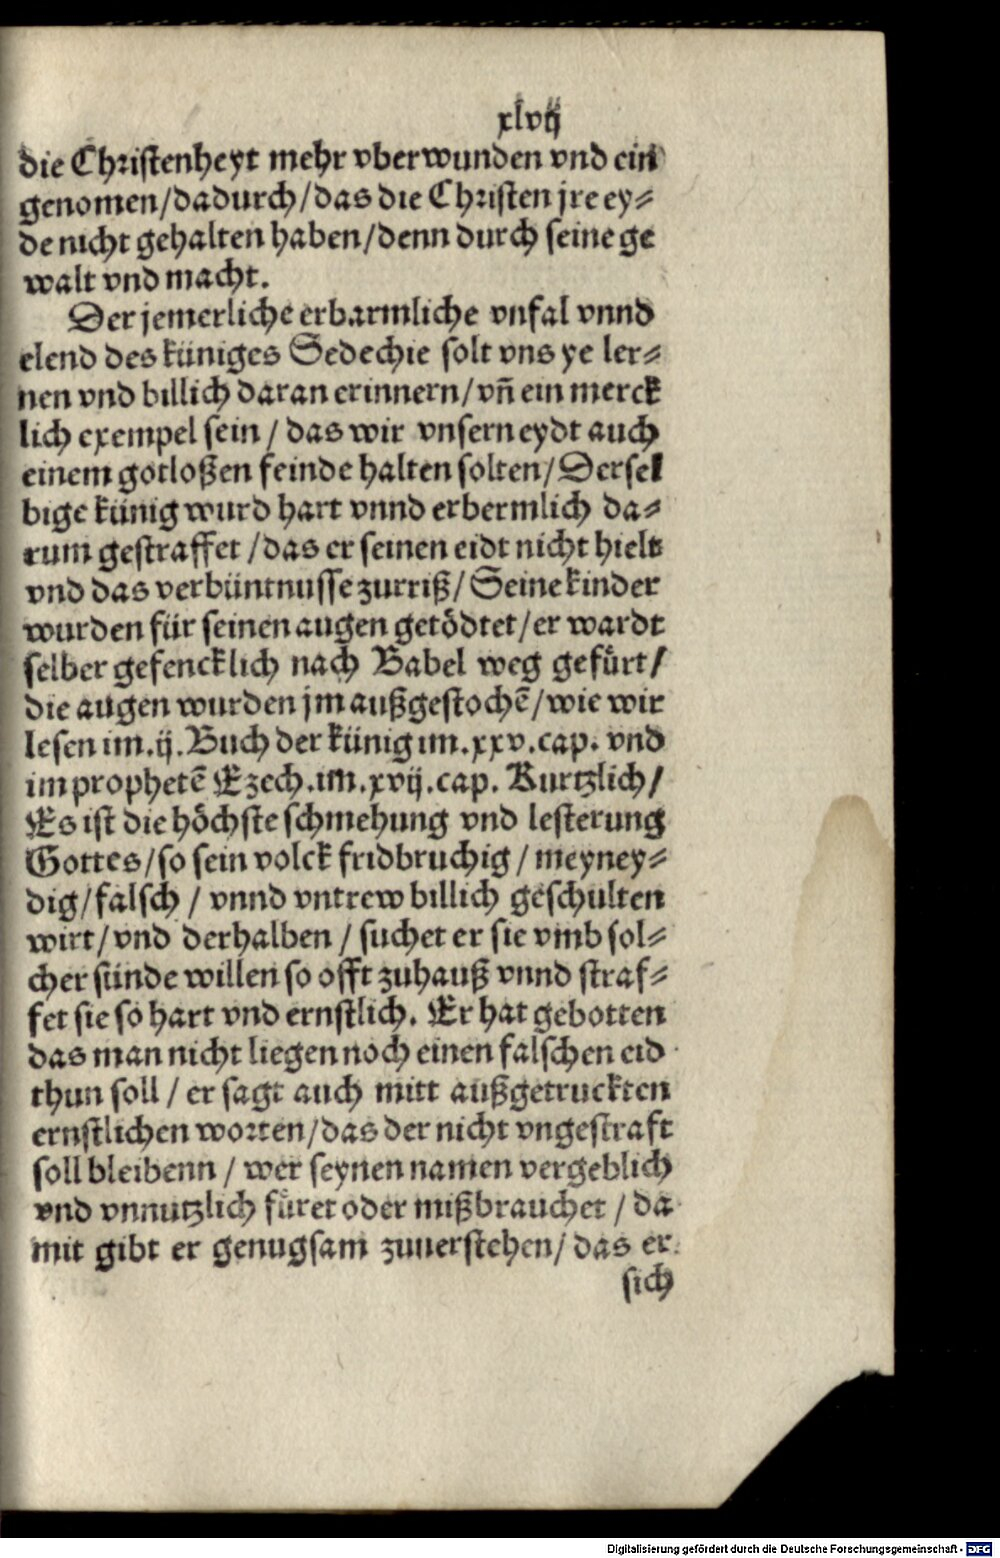 xlvij
die Christenheyt mehr vberwunden vnd ein
genomen/dadurch/das die Christen jre ey⸗
de nicht gehalten haben/denn durch seine ge
walt vnd macht.
Der jemerliche erbarmliche vnfal vnnd
elend des küniges Sedechie solt vns ye ler⸗
nen vnd billich daran erinnern/vñ ein merck
lich exempel sein / das wir vnsern eydt auch
einem gotloßen feinde halten solten/Dersel
bige künig wurd hart vnnd erbermlich da⸗
rum gestraffet /das er seinen eidt nicht hielt
vnd das verbüntnusse zurriß/ Seine kinder
wurden für seinen augen getödtet/er wardt
selber gefencklich nach Babel weg gefürt/
die augen wurden jm außgestochē/wie wir
lesen im.ij.Buch der künig im.xxv.cap. vnd
im prophetē Ezech.im.xvij.cap. Kurtzlich/
Es ist die höchste schmehung vnd lesterung
Gottes/so sein volck fridbruchig / meyney⸗
dig/falsch / vnnd vntrew billich geschulten
wirt/vnd derhalben / suchet er sie vmb sol⸗
cher sünde willen so offt zuhauß vnnd straf⸗
fet sie so hart vnd ernstlich. Er hat gebotten
das man nicht liegen noch einen falschen eid
thun soll / er sagt auch mitt außgetruckten
ernstlichen worten/das der nicht vngestraft
soll bleibenn / wer seynen namen vergeblich
vnd vnnutzlich füret oder mißbrauchet / da
mit gibt er genugsam zuuerstehen/ das er
sich
Digitalisierung gefördert durch die Deutsche Forschungsgemeinschaft - DFG